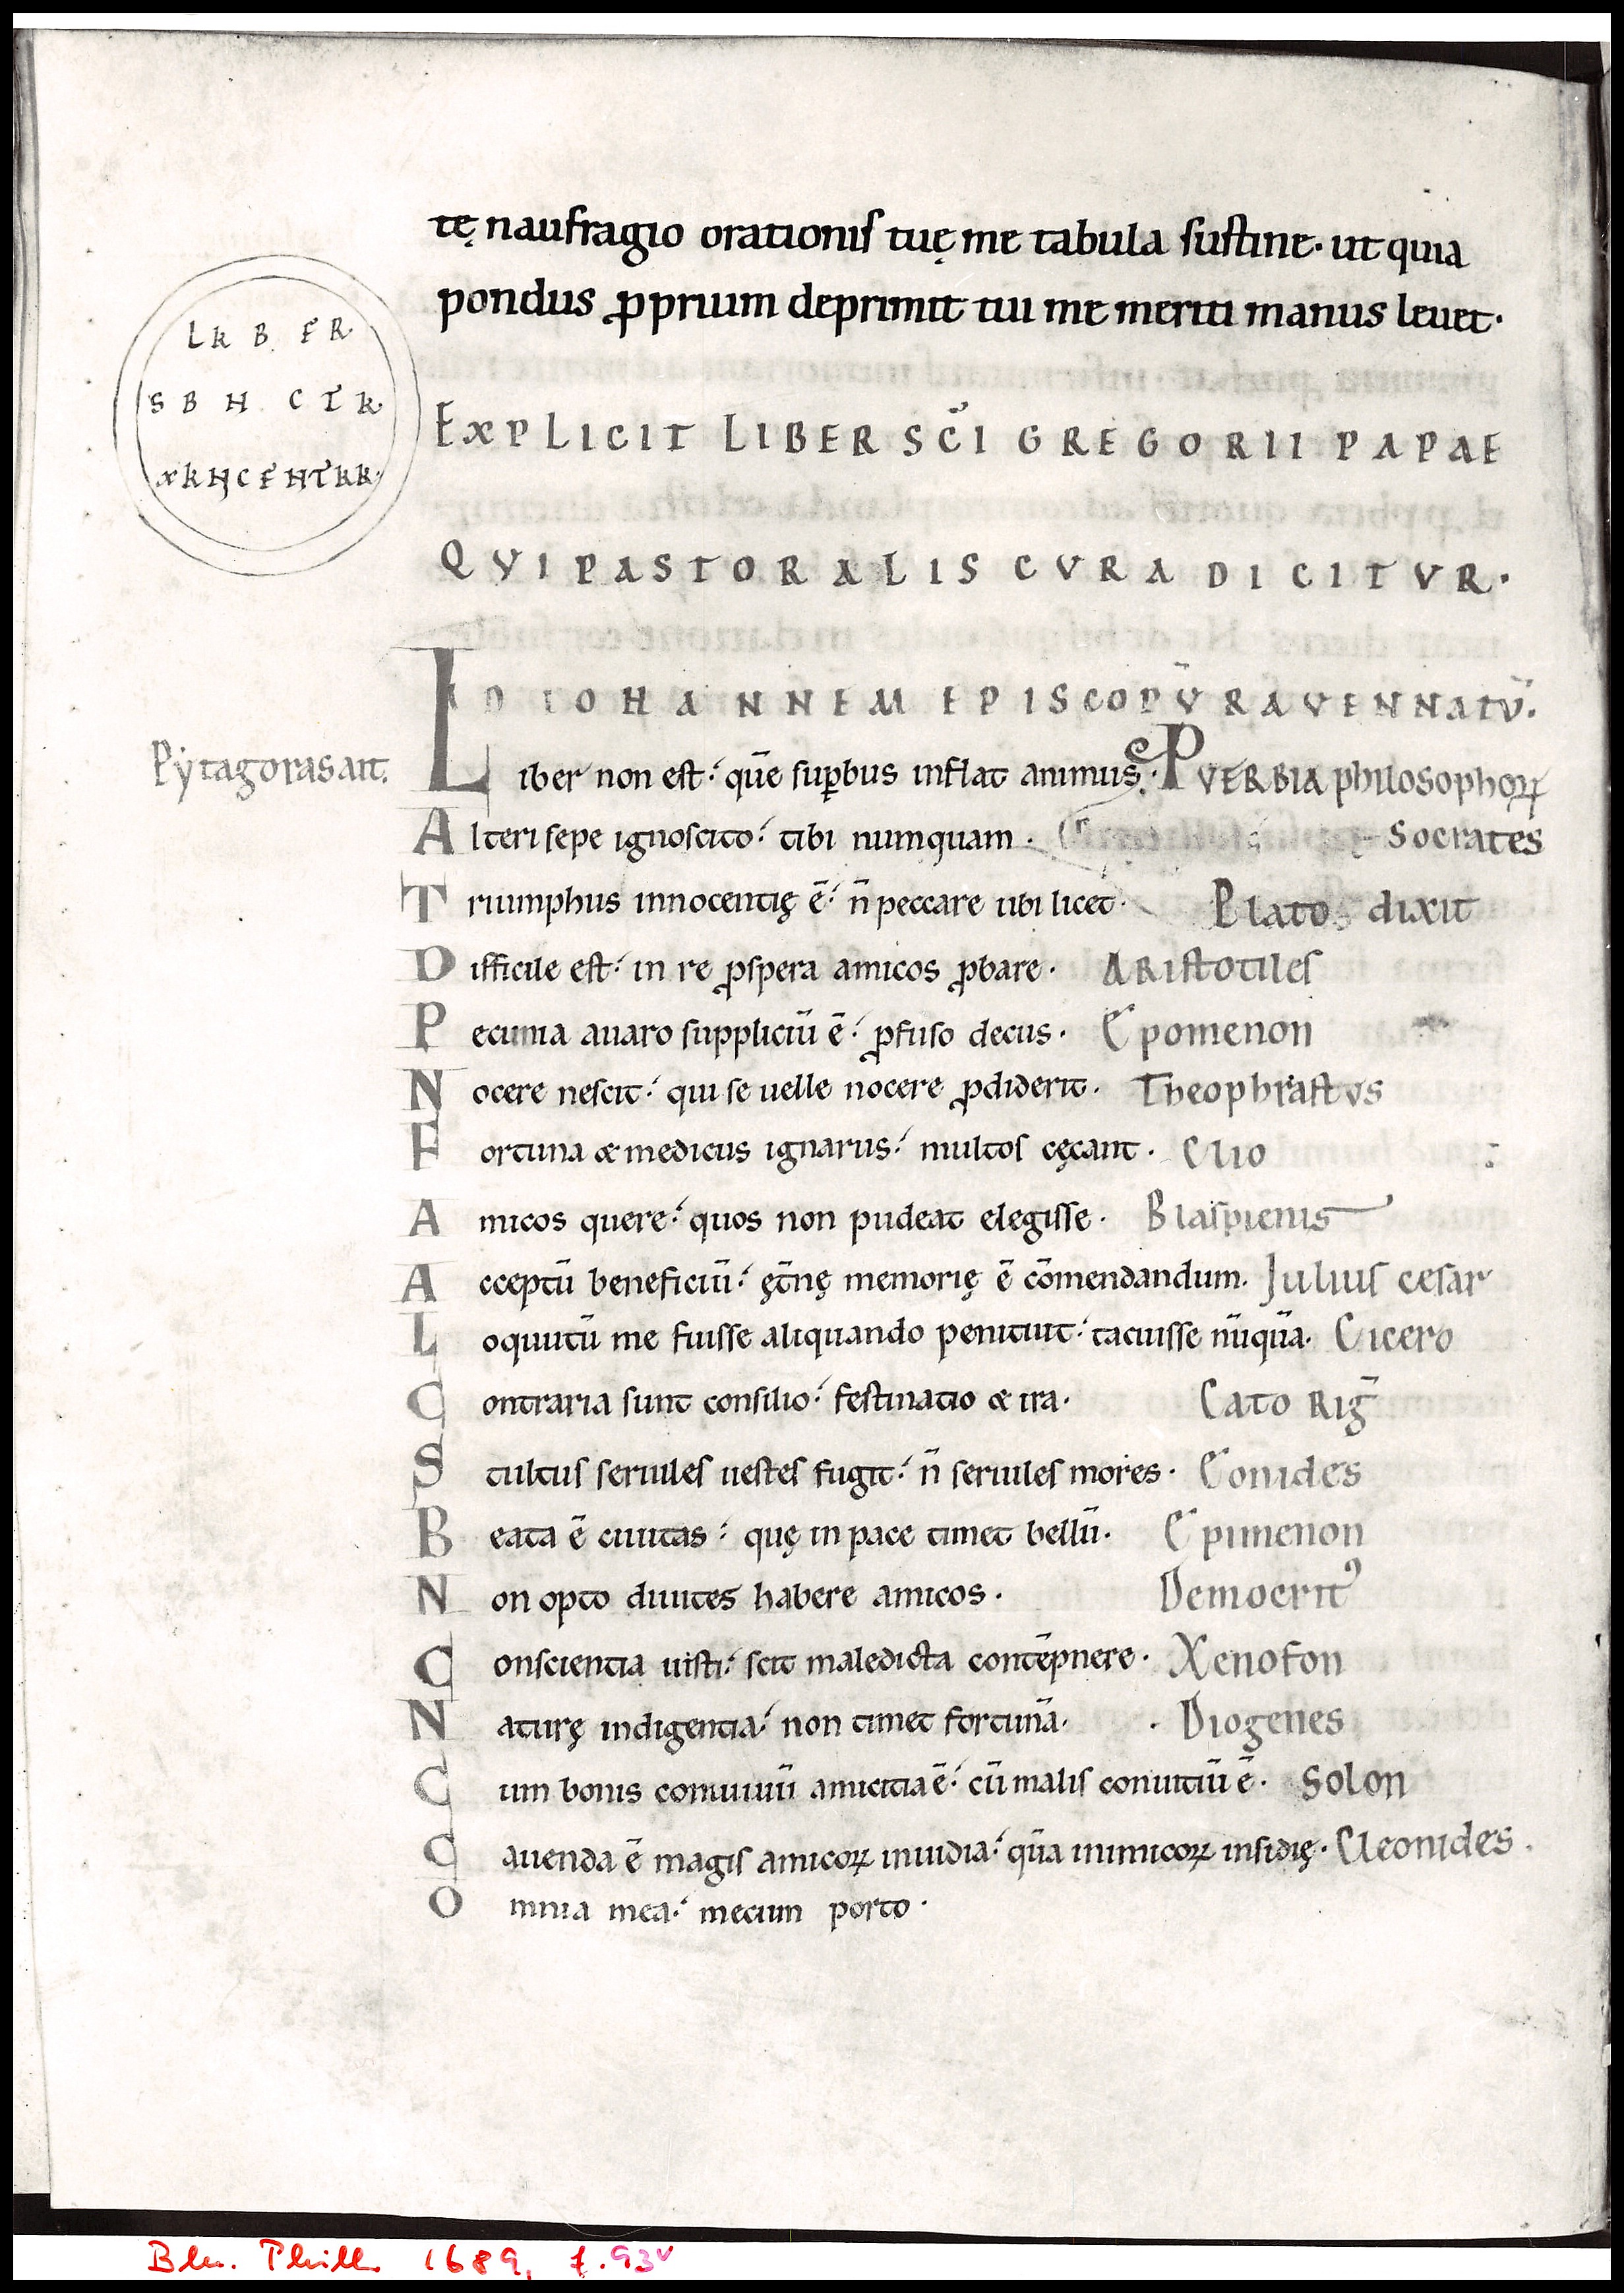 tę naufragio orationis tuę me tabula sustine· ut quia
pondus ꝓprium deprimit tui me meriti manus leuet·
LK B FR
S B H C T K·
XKHCFHTKK·
EXPLICIT LIBER SC̄I GREGORII PAPAE
QVI PASTORALIS CVRA DICITVR·
AD IOHANNEM EPISCOPV̄ RAVENNATV̄·
Pẏtagoras ait.
Liber non est· quē suꝑbus inflat animus· PVERBIA philosophoꝝ
Alteri sepe ignoscito· tibi numquam· Socrates
Triumphus innocentię ē· n̄ peccare ubi licet· Plato dixit
Difficile est· in re ꝓspera amicos ꝓbare· ARistotiles
Pecunia auaro suppliciū ē· ꝓfuso decus· Epomenon
Nocere nescit· qui se uelle nocere ꝓdiderit· Theophrastvs
Fortuna & medicus ignarus· multos cęcant· Clio
Amicos quere· quos non pudeat elegisse· Blaspienis
Acceptū beneficiū· ęt̄nę memorię ē cōmendandum· Julius cesar
Loquutū me fuisse aliquando penituit· tacuisse nūquā· Cicero
Contraria sunt consilio· festinatio & ira· Cato Riḡ
Stultus seruiles uestes fugit· n̄ seruiles mores· Eonides
Beata ē ciuitas· quę in pace timet bellū· Epimenon
Non opto diuites habere amicos· Democritꝰ
Conscientia iusti· scit maledicta contēpnere· Xenofon
Naturę indigentia· non timet fortunā· Diogenes
Cum bonis conuiuiū amicitia ē· cū malis conuitiū ē· Solon
Cauenda ē magis amicoꝝ inuidia· quā inimicoꝝ insidię· Cleonides·
Omnia mea· mecum porto·
Bln. Phill. 1689, f.93v